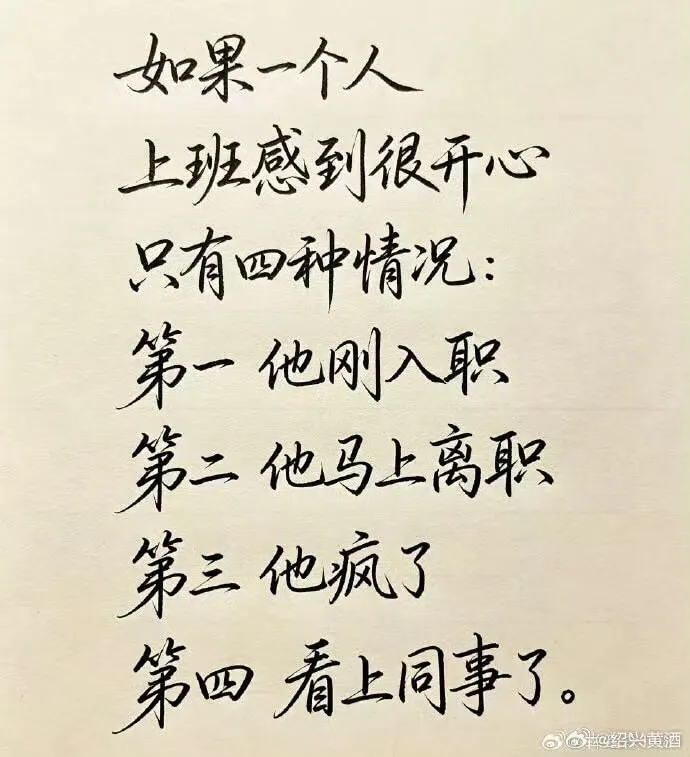 如果一个人
上班感到很开心
只有四种情况：
第一 他刚入职
第二 他马上离职
第三 他疯了
第四 看上同事了。
@绍兴黄酒